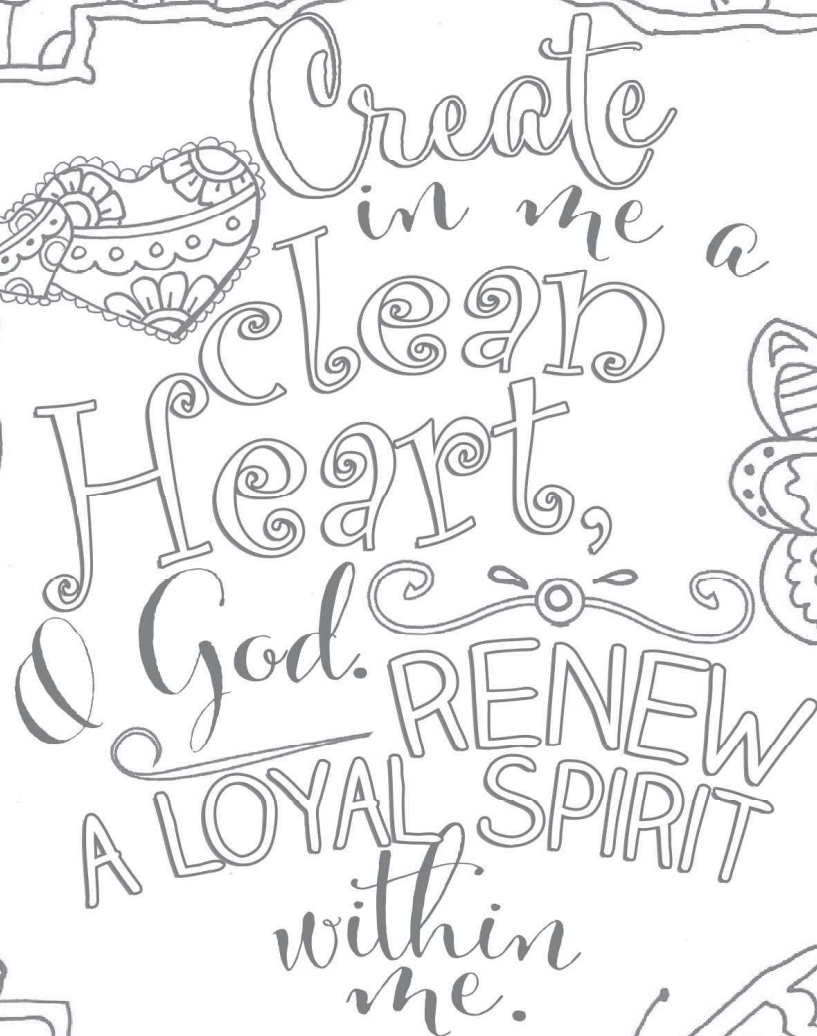 Create
in me a
clean
Heart,
O God.
RENEW
A LOYAL SPIRIT
within
me.